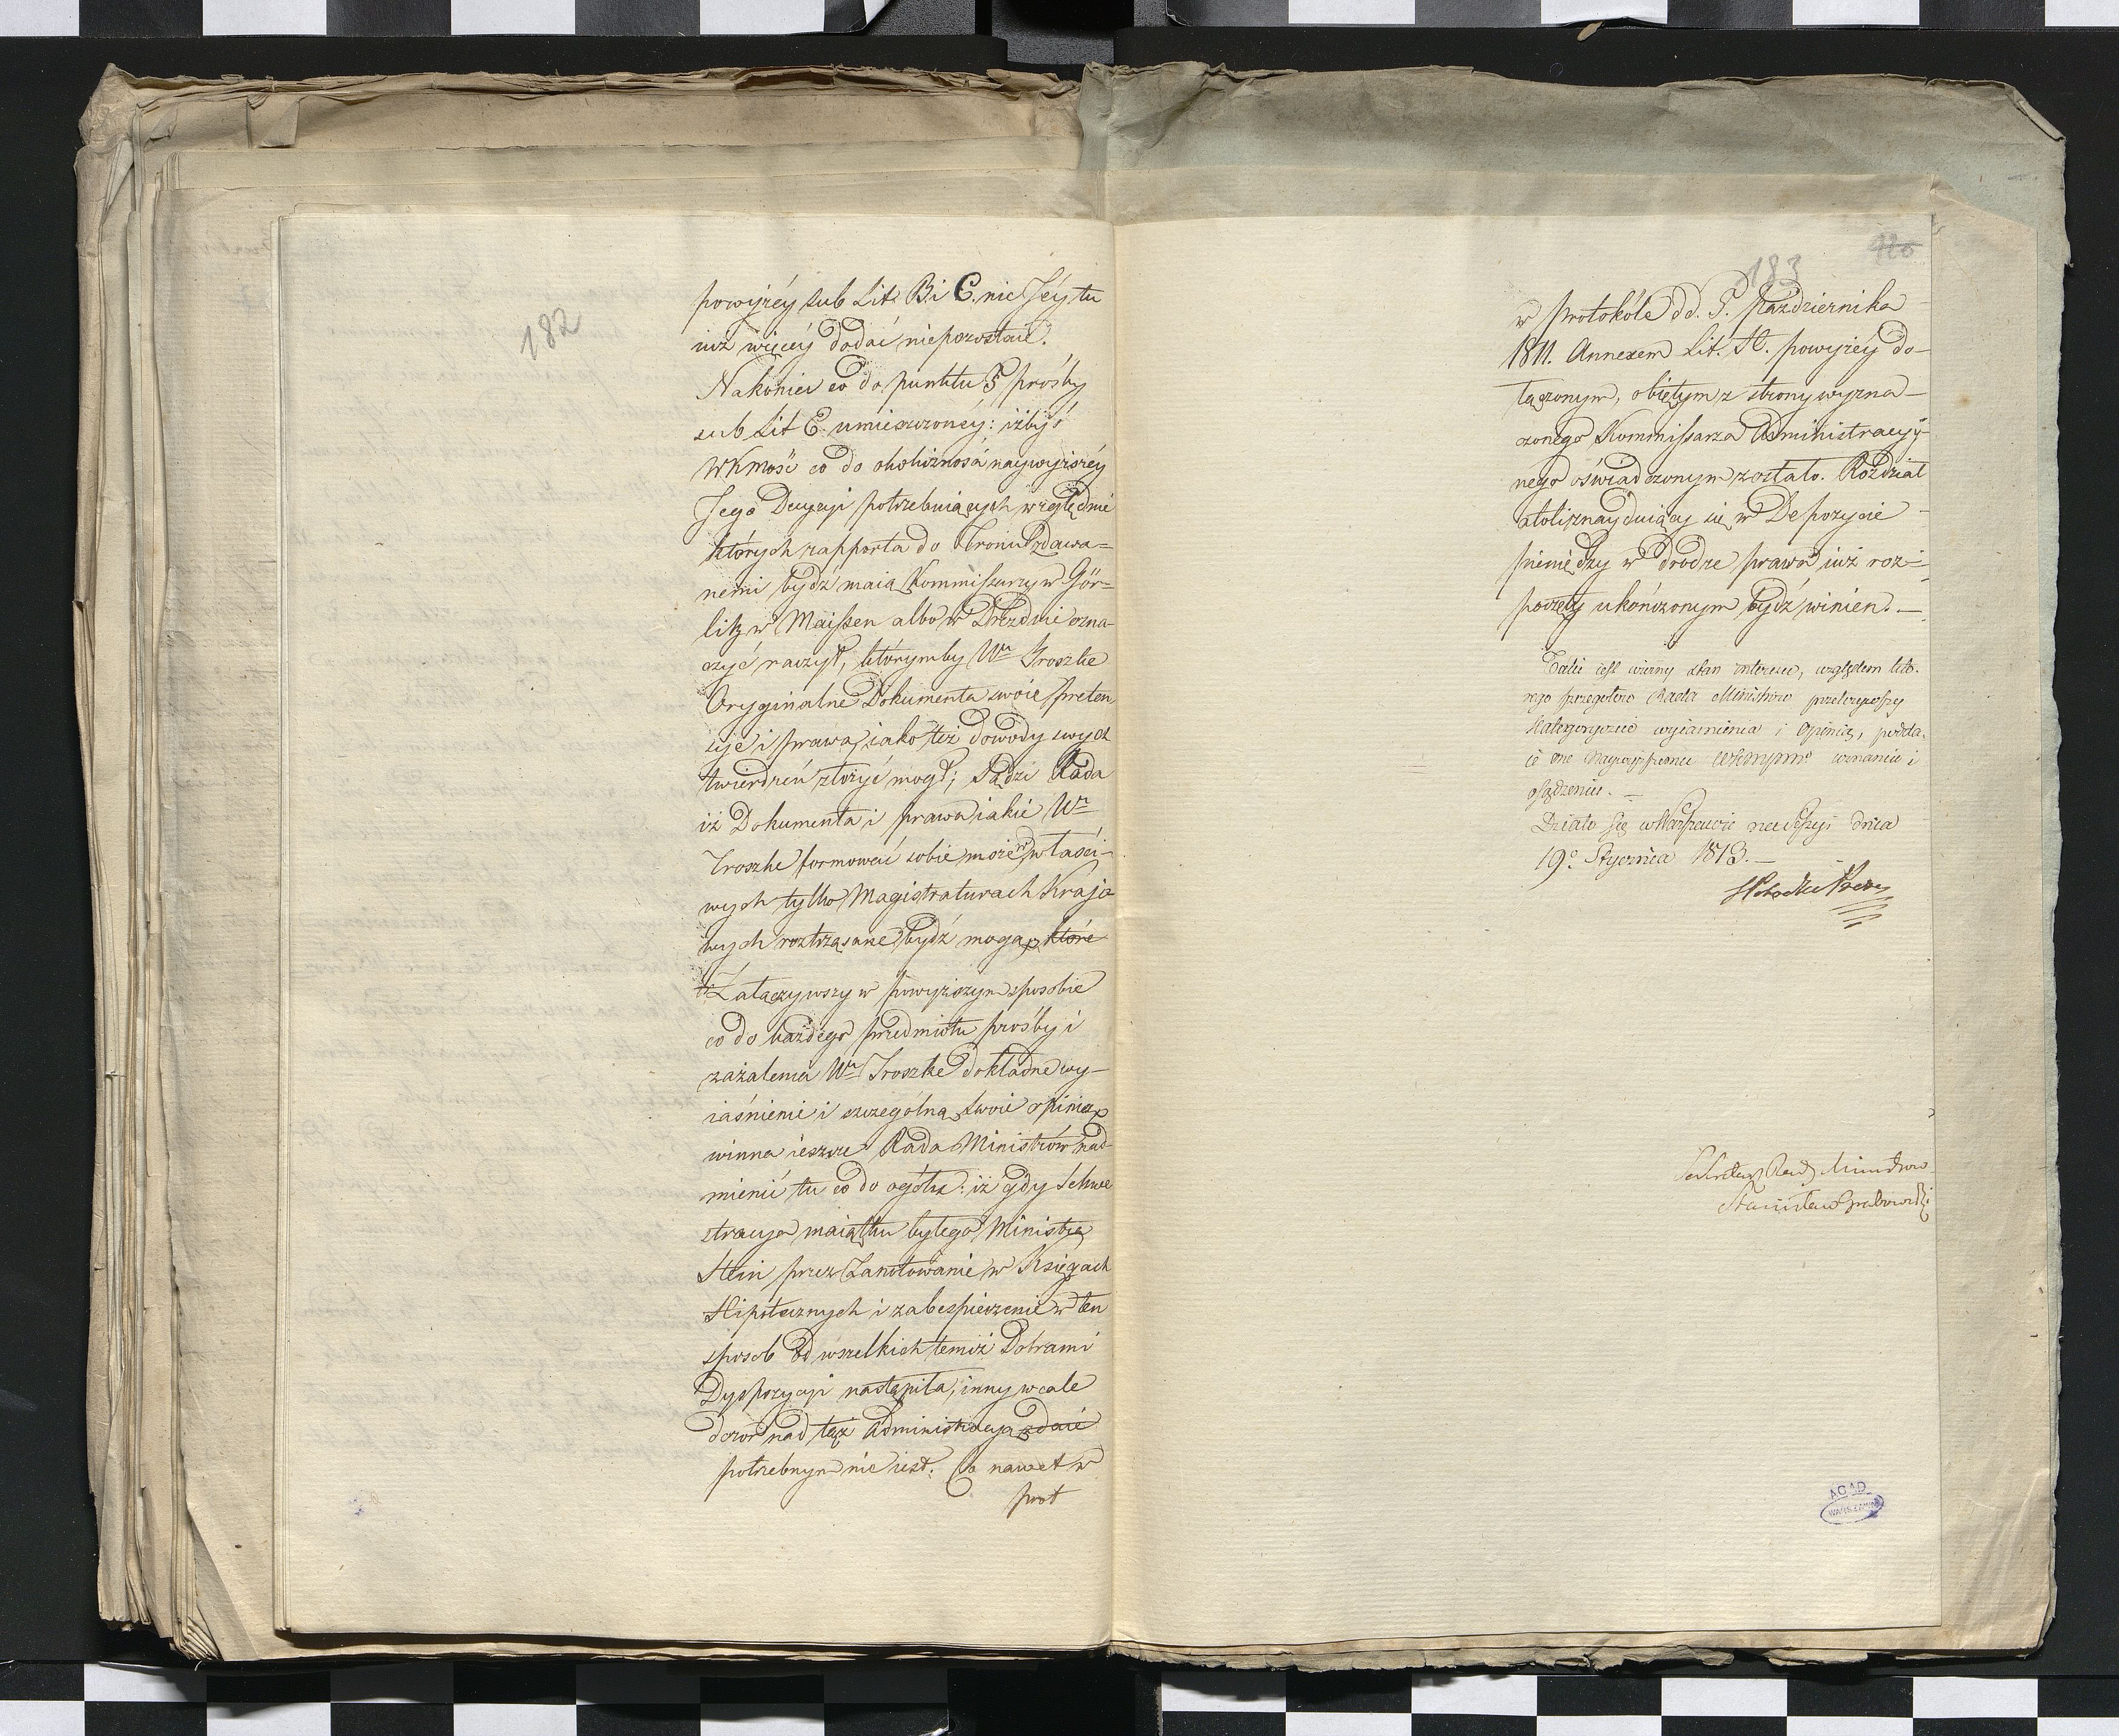 182
powyżéy sub Lit. B. i C. nic Jéy tu
iuż więcéy dodać niepozostaie.
Nakoniec co do punktu 5 prośby
sub Lit E. umieszczonéy: iżbyś
WKMość co do okoliczności naywyższéy
Jego Decyzyi potrzebuiących względnie
których rapporta do Tronu zdawa=
nemi bydź maią Kommissarzy w Gör=
litz w Maissen albo w Dreznie ozna-
czyć raczył, którymby Wn Troszke
Oryginalne Dokumenta swoie preten
syie i prawa, iako też dowody swych
twierdzeń złożyć mogł; Sądzi Rada
iż Dokumenta i prawa iakie Wn
Troszke formować sobie może w właści-
wych tylko Magistraturach Krajo
wych roztrząsane bydź mogą, które
Załączywszy w powyższym sposobie
co do każdego przedmiotu prośby i
zażalenia Wn Troszke dokładne wy-
iaśnienie i szczególną swoie opinią
winna ieszcze Rada Ministrów nad
mienić tu co do ogółu: iż gdy Sekwe
stracya maiątku byłego Ministra
Stein przez Zanotowanie w Księgach
Hipotecznych i zabespieczenie w ten
sposob od wszelkich temiż Dobrami
Dyspozycyi nastąpiła, inny wcale
dozor nad tąż Administracyą zdaie
potrzebnym nie iest. Co nawet w
prot
183
w protokóle dd. 5. Października
1811. Annexem Lit. A. powyżéy do-
łączonym, obiętym z strony wyzna-
czonego Kommissarza Administracyy-
nego oświadczonym zostało. Rozdział
atoli znayduiący się w Depozycie
pieniędzy w drodze prawa iuż roz-
poczęty ukończonym bydź winien. —
Taki iest wierny stan interesu, względem któ-
rego szczegółow Rada Ministrow przełożywszy
kategoryczne wyiaśnienia i Opinią, podda-
ie one Naywyższemu WKMości uznaniu i
osądzeniu. —
Działo się w Warszawie na Sessyi dnia
19o Stycznia 1813. —
Sekretarz Rady Ministrow
Stanisław Grabowski
AGAD
WARSZAWA